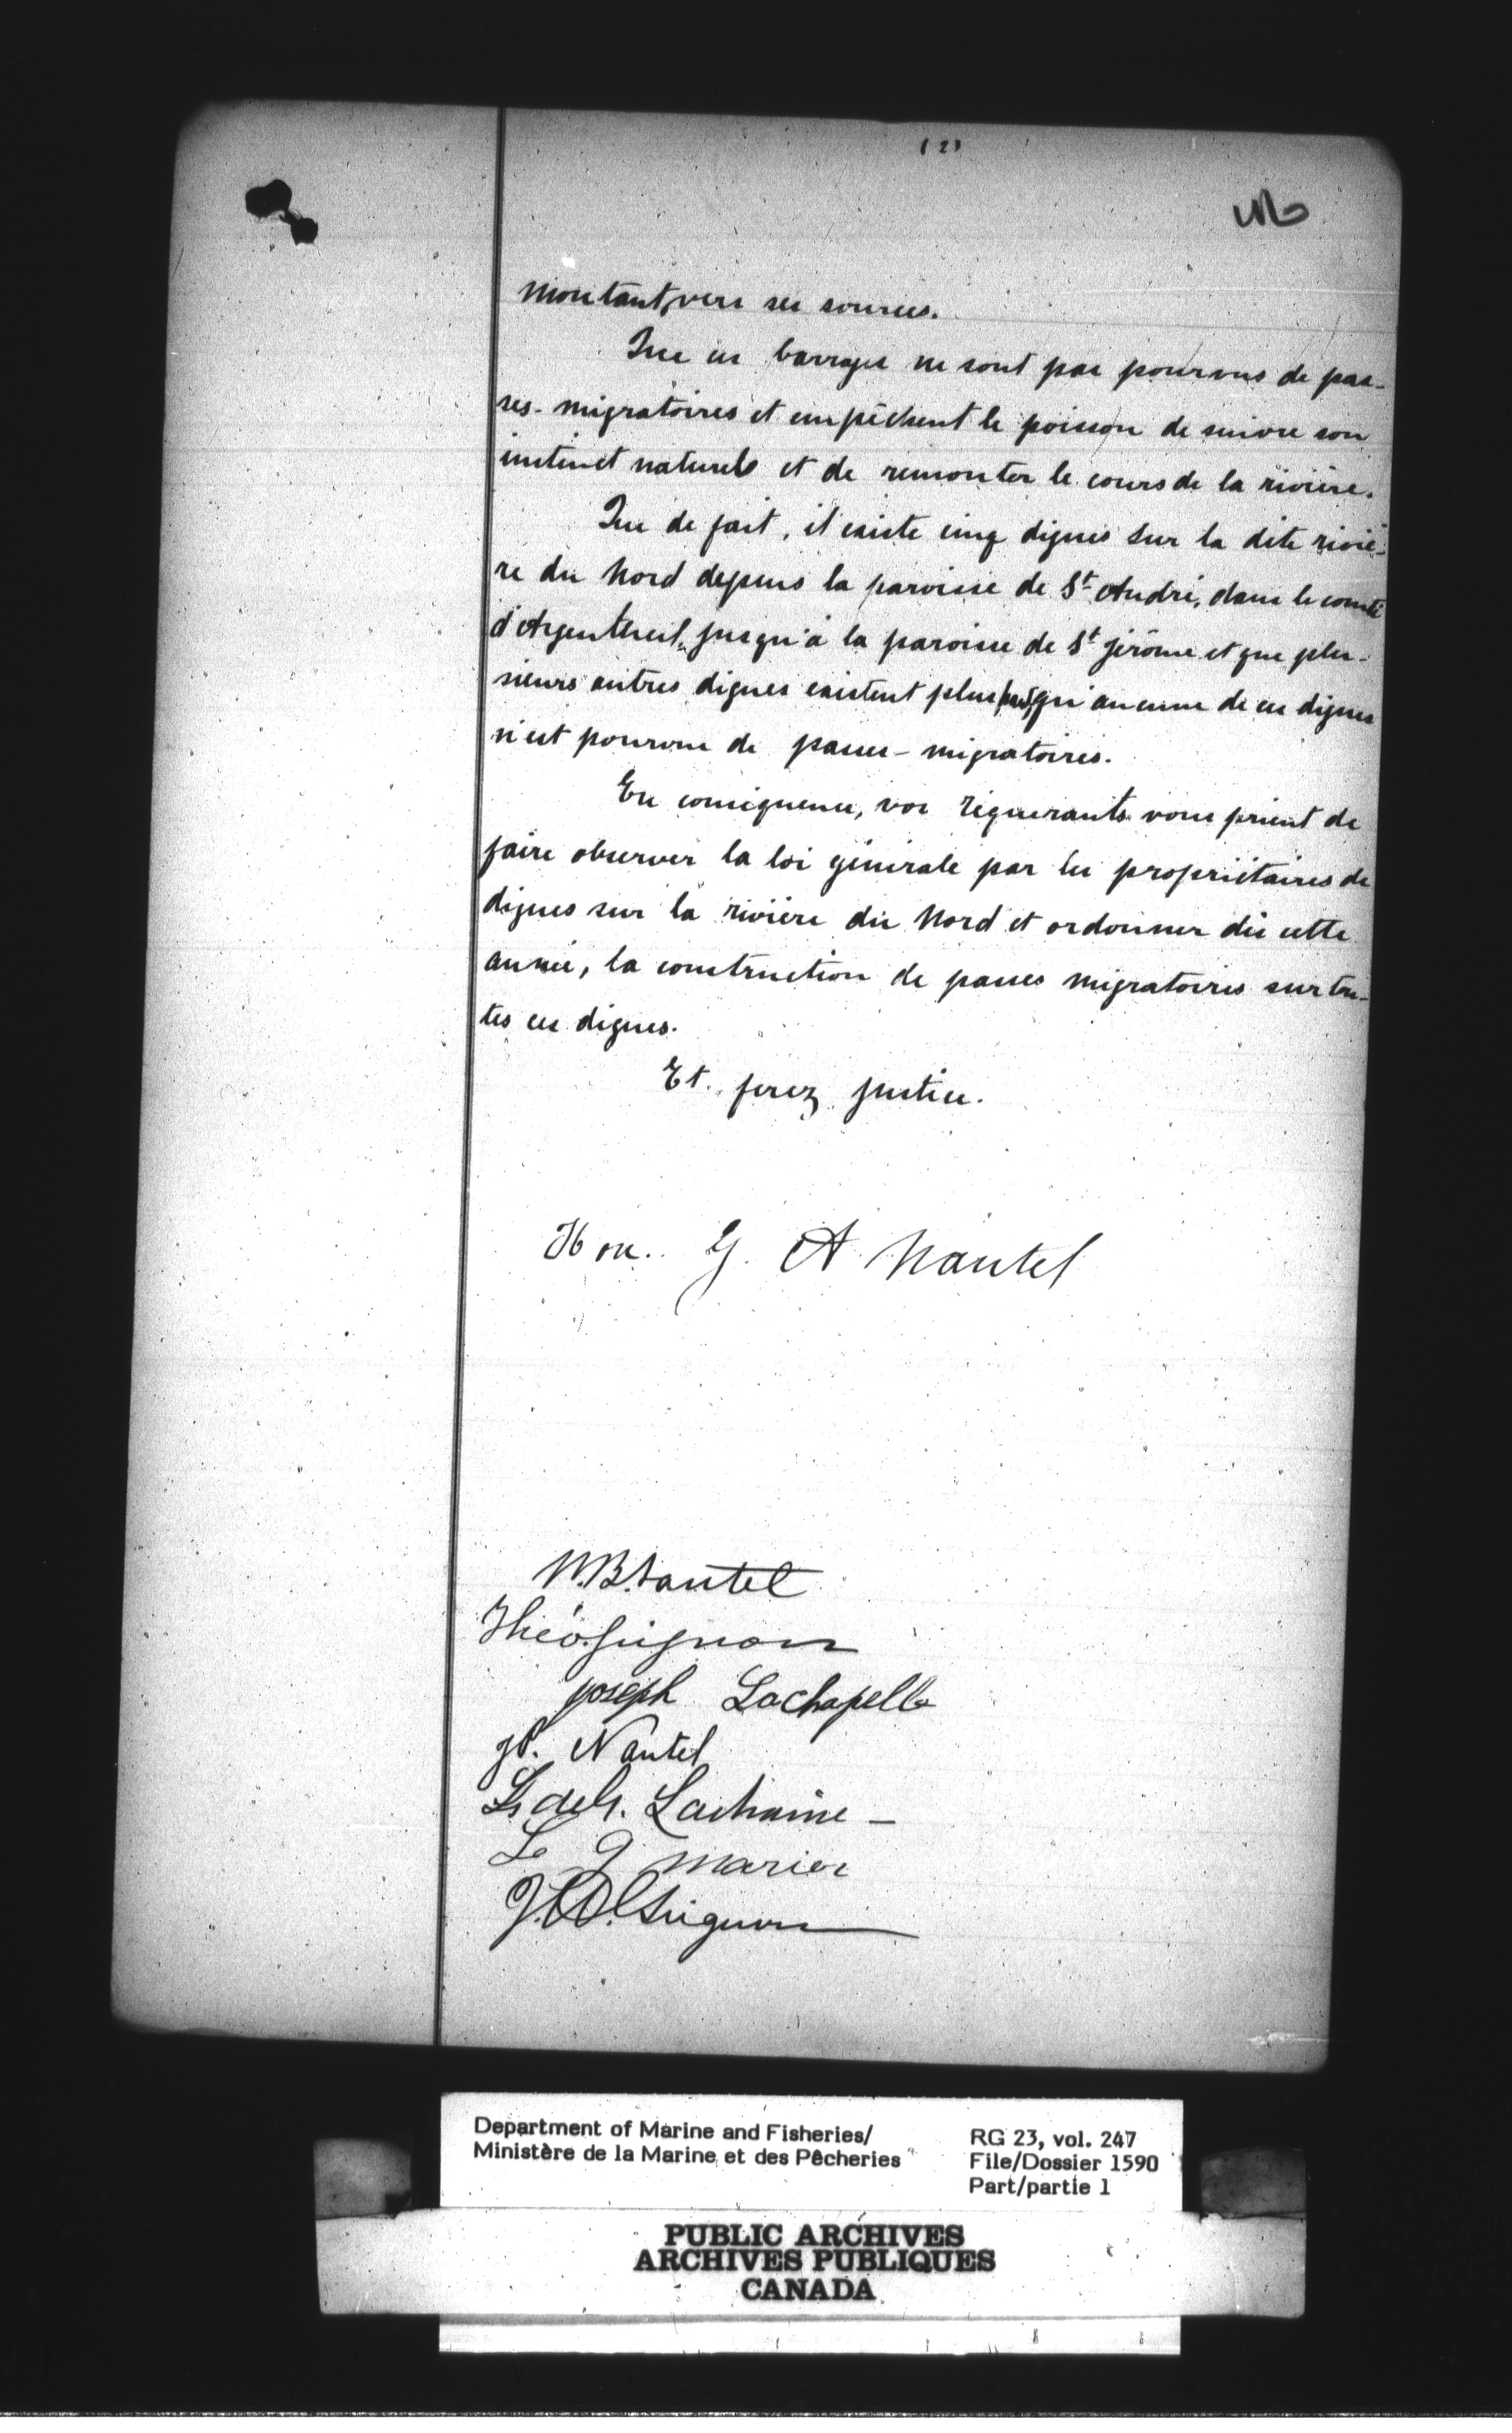 (2)
montant, vers ses sources.
Que ces barrages ne sont pas pourvus de pas-
ses-migratoires et empêchent le poisson de suivre son
instinct naturel et de remonter le cours de la rivière.
Que de fait, il existe cinq digues sur la dite riviè-
re du Nord depuis la paroisse de St André, dans le comté
d'Argenteuil, jusqu'à la paroisse de St Jérôme et que plu-
sieurs autres digues existent plus haut, qu'aucune de ces digues
n'est pourvue de passes-migratoires.
En conséquence, vos requérants vous prient de
faire observer la loi générale par les propriétaires de
digues sur la rivière du Nord et ordonner dès cette
année, la construction de passes migratoires sur tou-
tes ces digues.
Et ferez justice.
Hon. G. A Nantel
W.B. Nantel
Théo. Guignon
Joseph Lachapelle
Nantel
Lachaine -
L G Marier
Department of Marine and Fisheries/
Ministère de la Marine et des Pêcheries
RG 23, vol. 247
File/Dossier 1590
Part/partie 1
PUBLIC ARCHIVES
ARCHIVES PUBLIQUES
CANADA